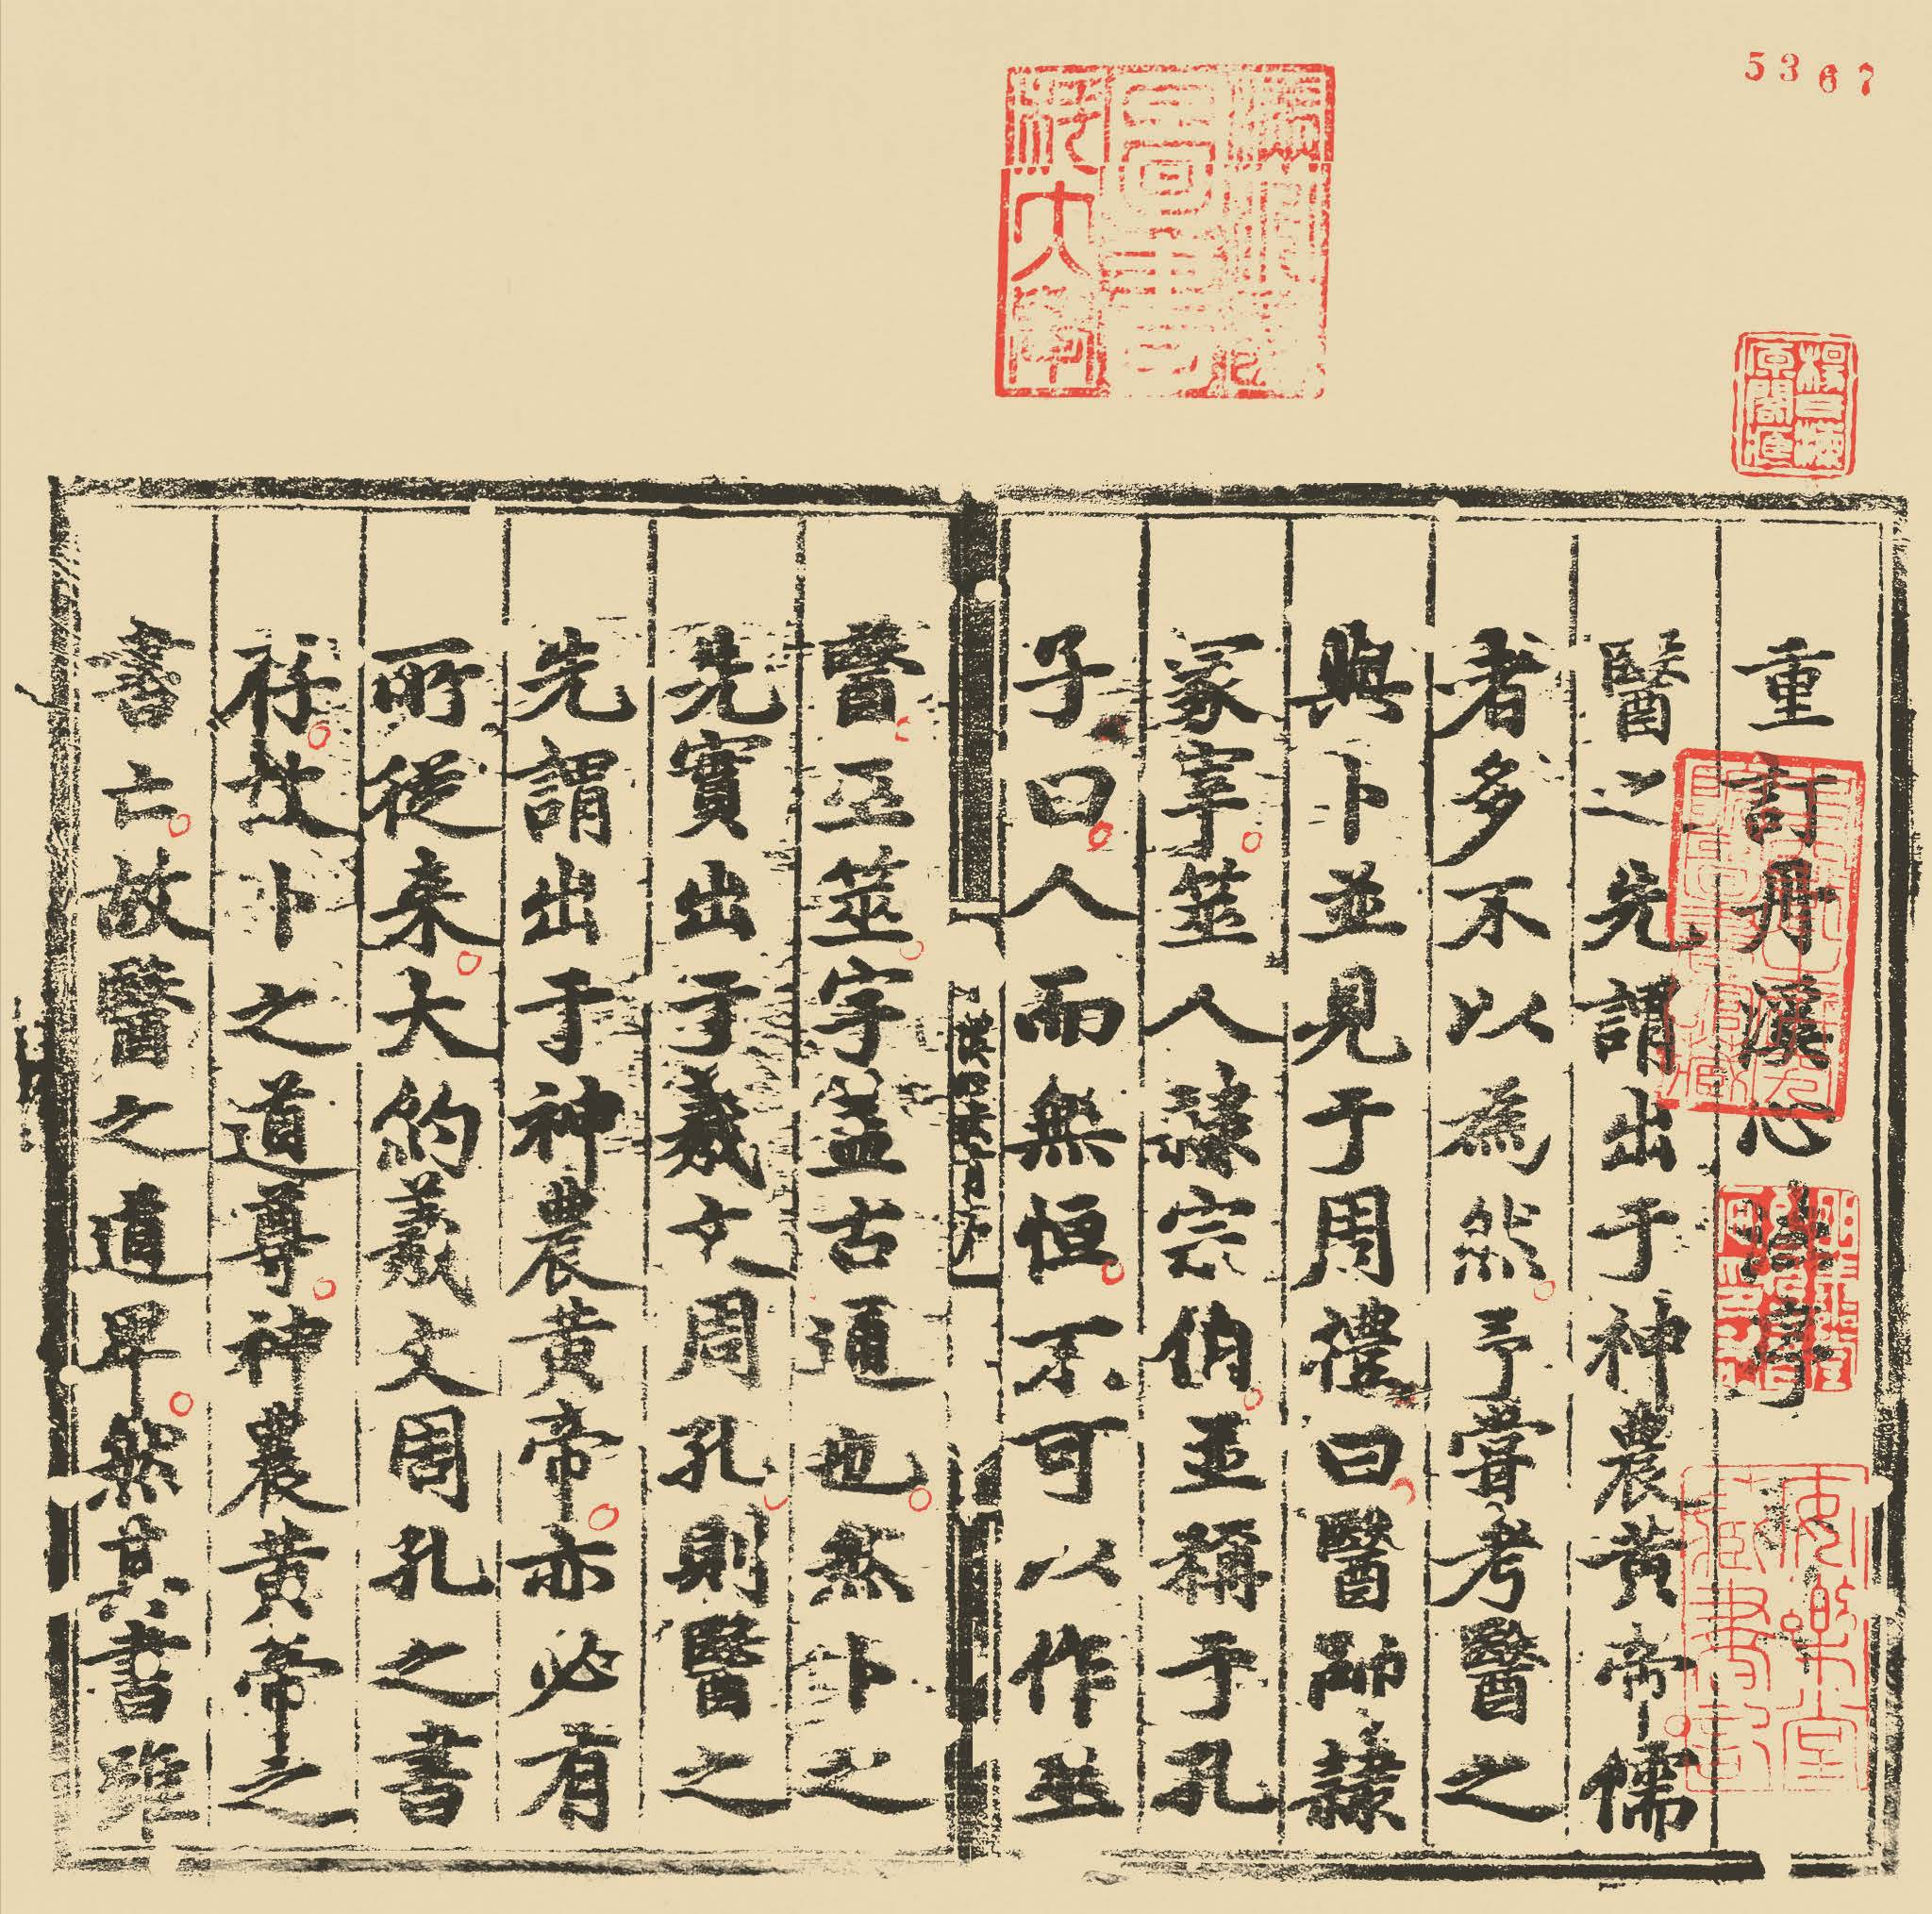 5367
重訂丹溪心法序
安樂堂藏書記
醫之先謂出于神農黃帝儒
者多不以為然予嘗考醫之
與卜並見于周禮曰醫師隸
冢宰筮人隸宗伯並稱于孔
子曰人而無恒不可以作巫
醫巫筮字蓋古通也然卜之
先實出于羲文周孔則醫之
先謂出于神農黃帝亦必有
所從来大約羲文周孔之書
存故卜之道尊神農黃帝之
書亡故醫之道卑然其書雖